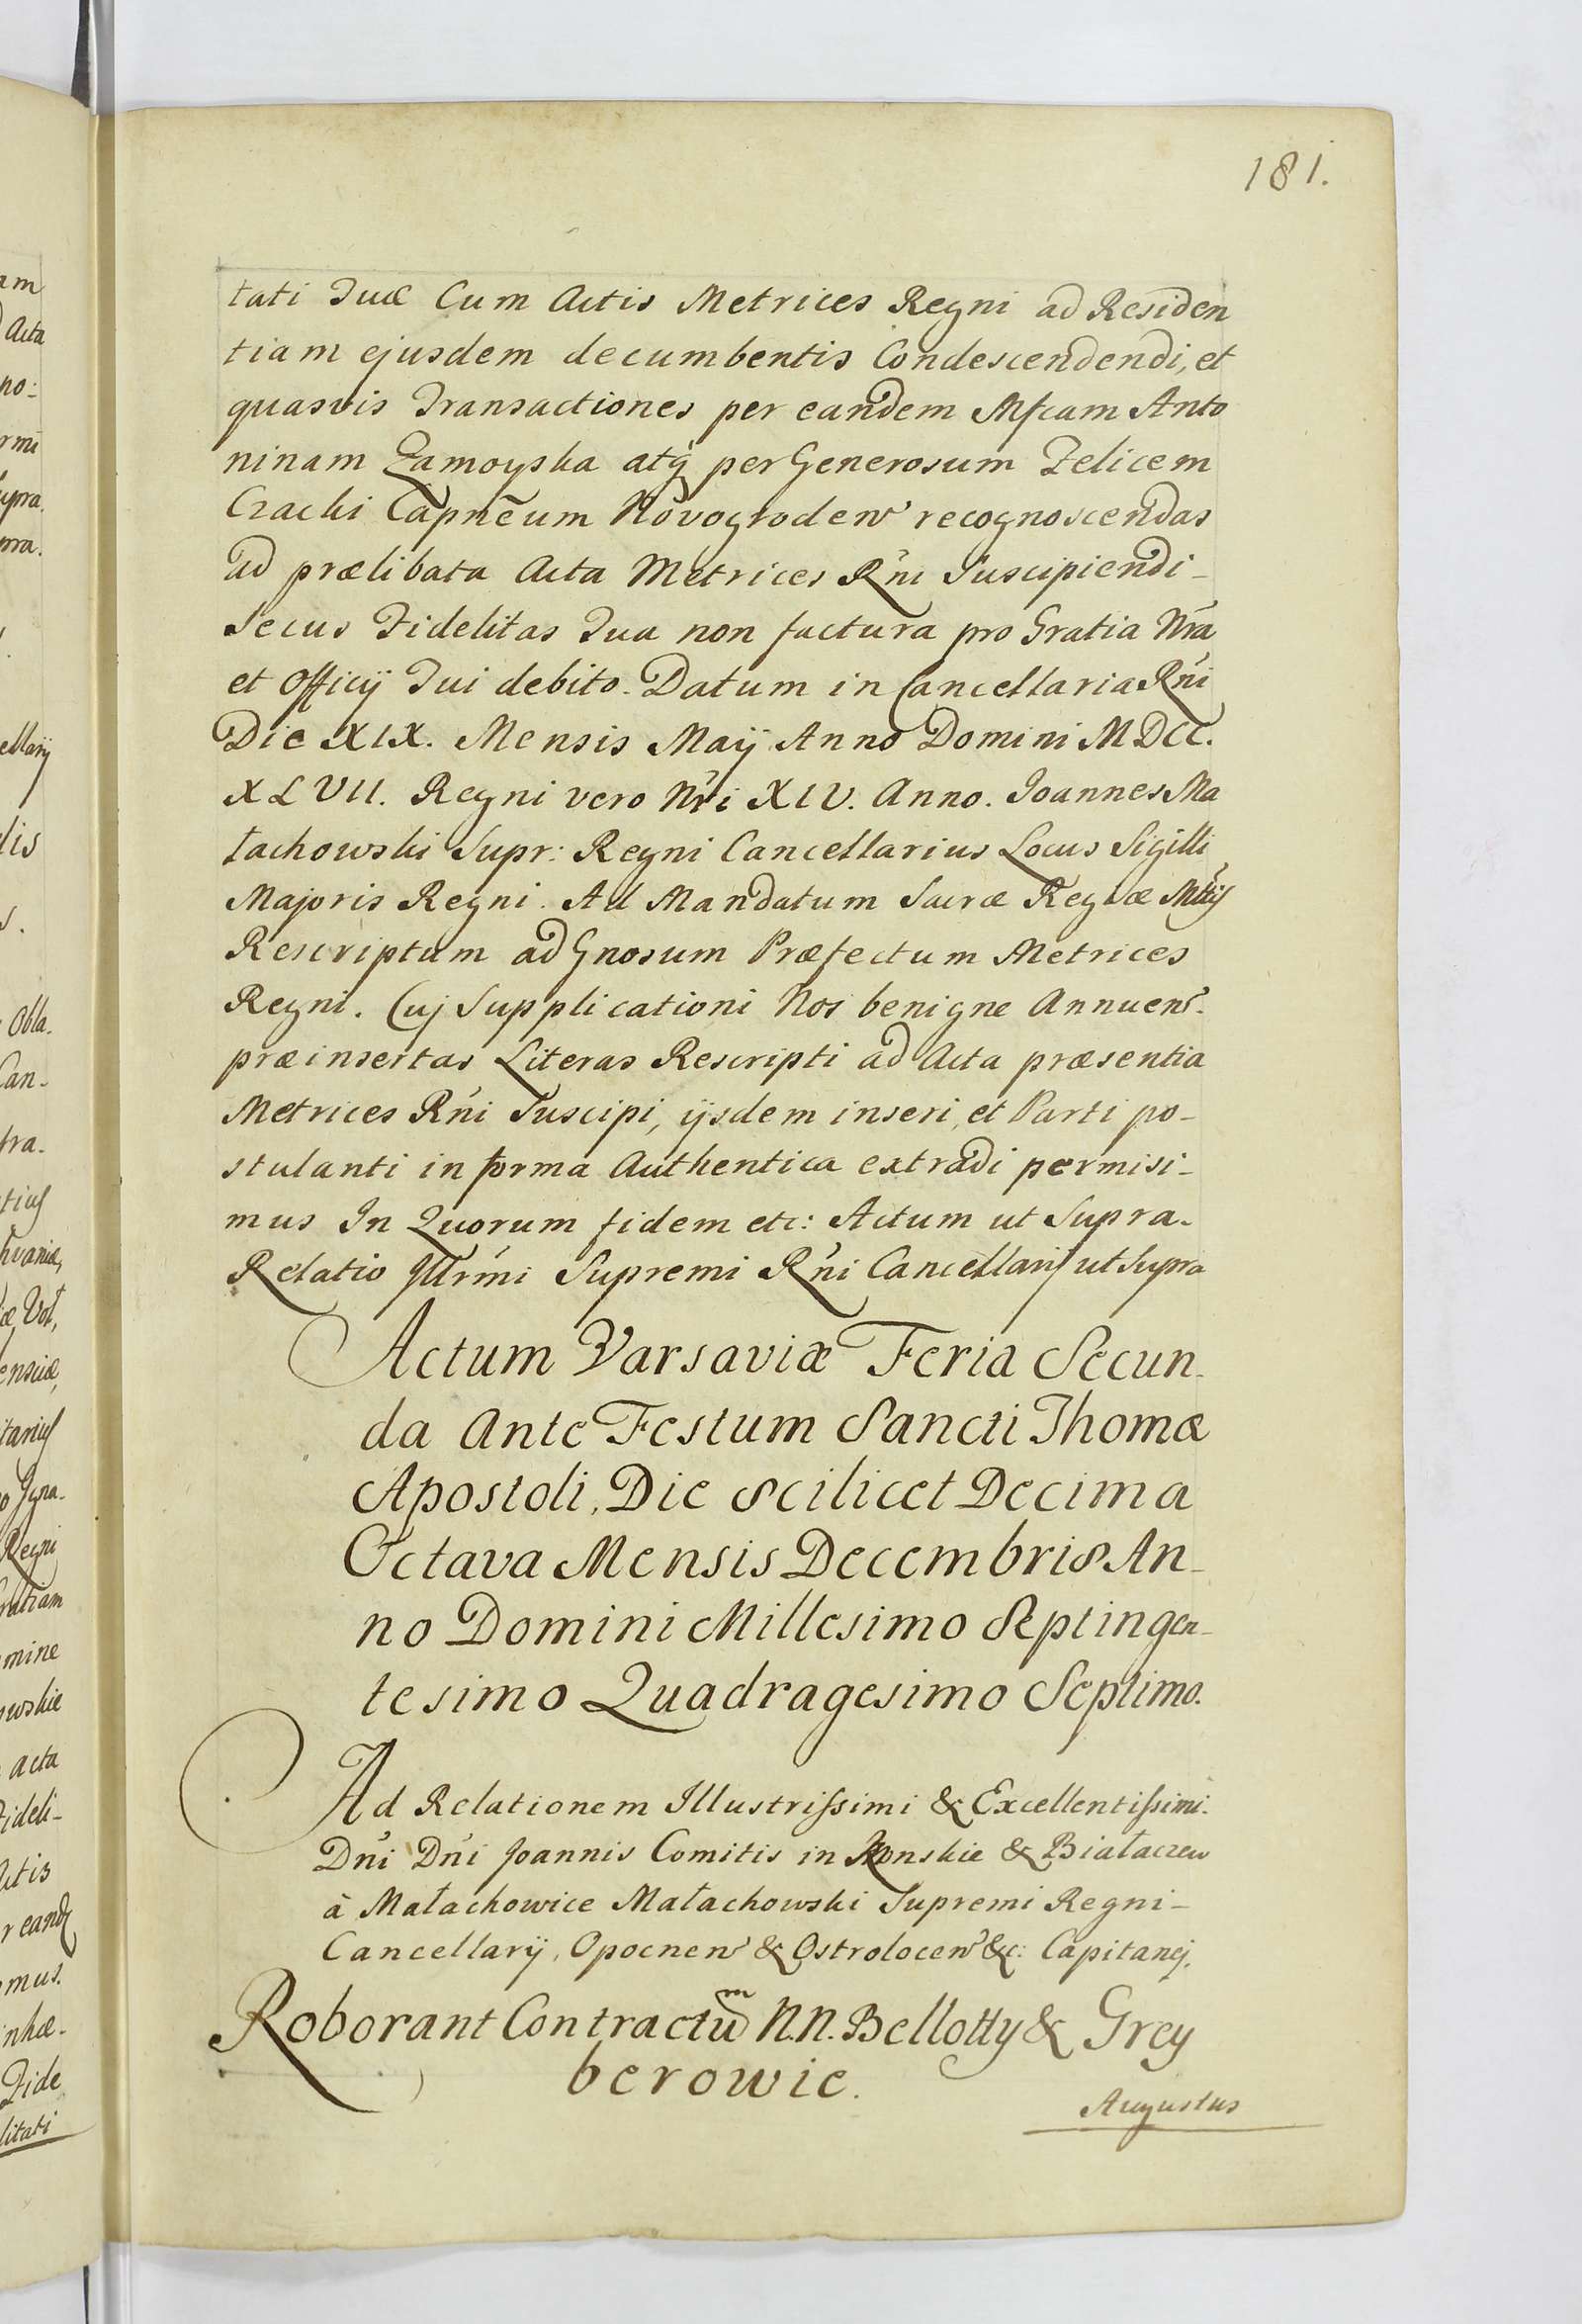 181.
tati Tuæ Cum Actis Metrices Regni ad Residen
tiam ejusdem decumbentis Condescendendi, et
quasvis Transactiones per eandem Mfcam Anto
ninam Zamoyska atq̃ per Generosum Felicem
Czacki Capnēum Novogroden̄ recognoscendas
ad prælibata Acta Metrices Rńi Suscipiendi_
Secus Fidelitas Tua non factura pro Gratia Nŕa
et Officij Tui debito. Datum in Cancellaria Rńi
Die XIX. Mensis Maij Anno Domini MDCC.
XLVII. Regni vero Nŕi XIV. Anno. Joannes Ma
łachowski Supr: Regni Cancellarius Locus Sigilli
Majoris Regni. Ad Mandatum Sacræ Regiæ Mttis
Rescriptum ad Gnosum Præfectum Metrices
Regni. Cuj Supplicationi Nos benigne Annuen̄.
præinsertas Literas Rescripti ad Acta præsentia
Metrices Rńi Suscipi, ijsdem inseri, et Parti po-
stulanti in forma Authentica extradi permisi-
mus In Quorum fidem etc: Actum ut Supra.
Relatio Illrḿi Supremi Rńi Cancellarij ut Supra
Actum Varsaviæ Feria Secun-
da Ante Festum Sancti Thomæ
Apostoli, Die Scilicet Decima
Octava Mensis Decembris An-
no Domini Millesimo Septingen-
tesimo Quadragesimo Septimo.
Ad Relationem Illustrissimi & Excellentissimi.
Dńi Dńi Joannis Comitis in Konskie & Białaczew
à Małachowice Małachowski Supremi Regni-
Cancellarij, Opocnen̄ & Ostrolocen̄ &c: Capitanej.
Roborant Contractum N.N. Bellotty & Grey
berowie.
Augustus